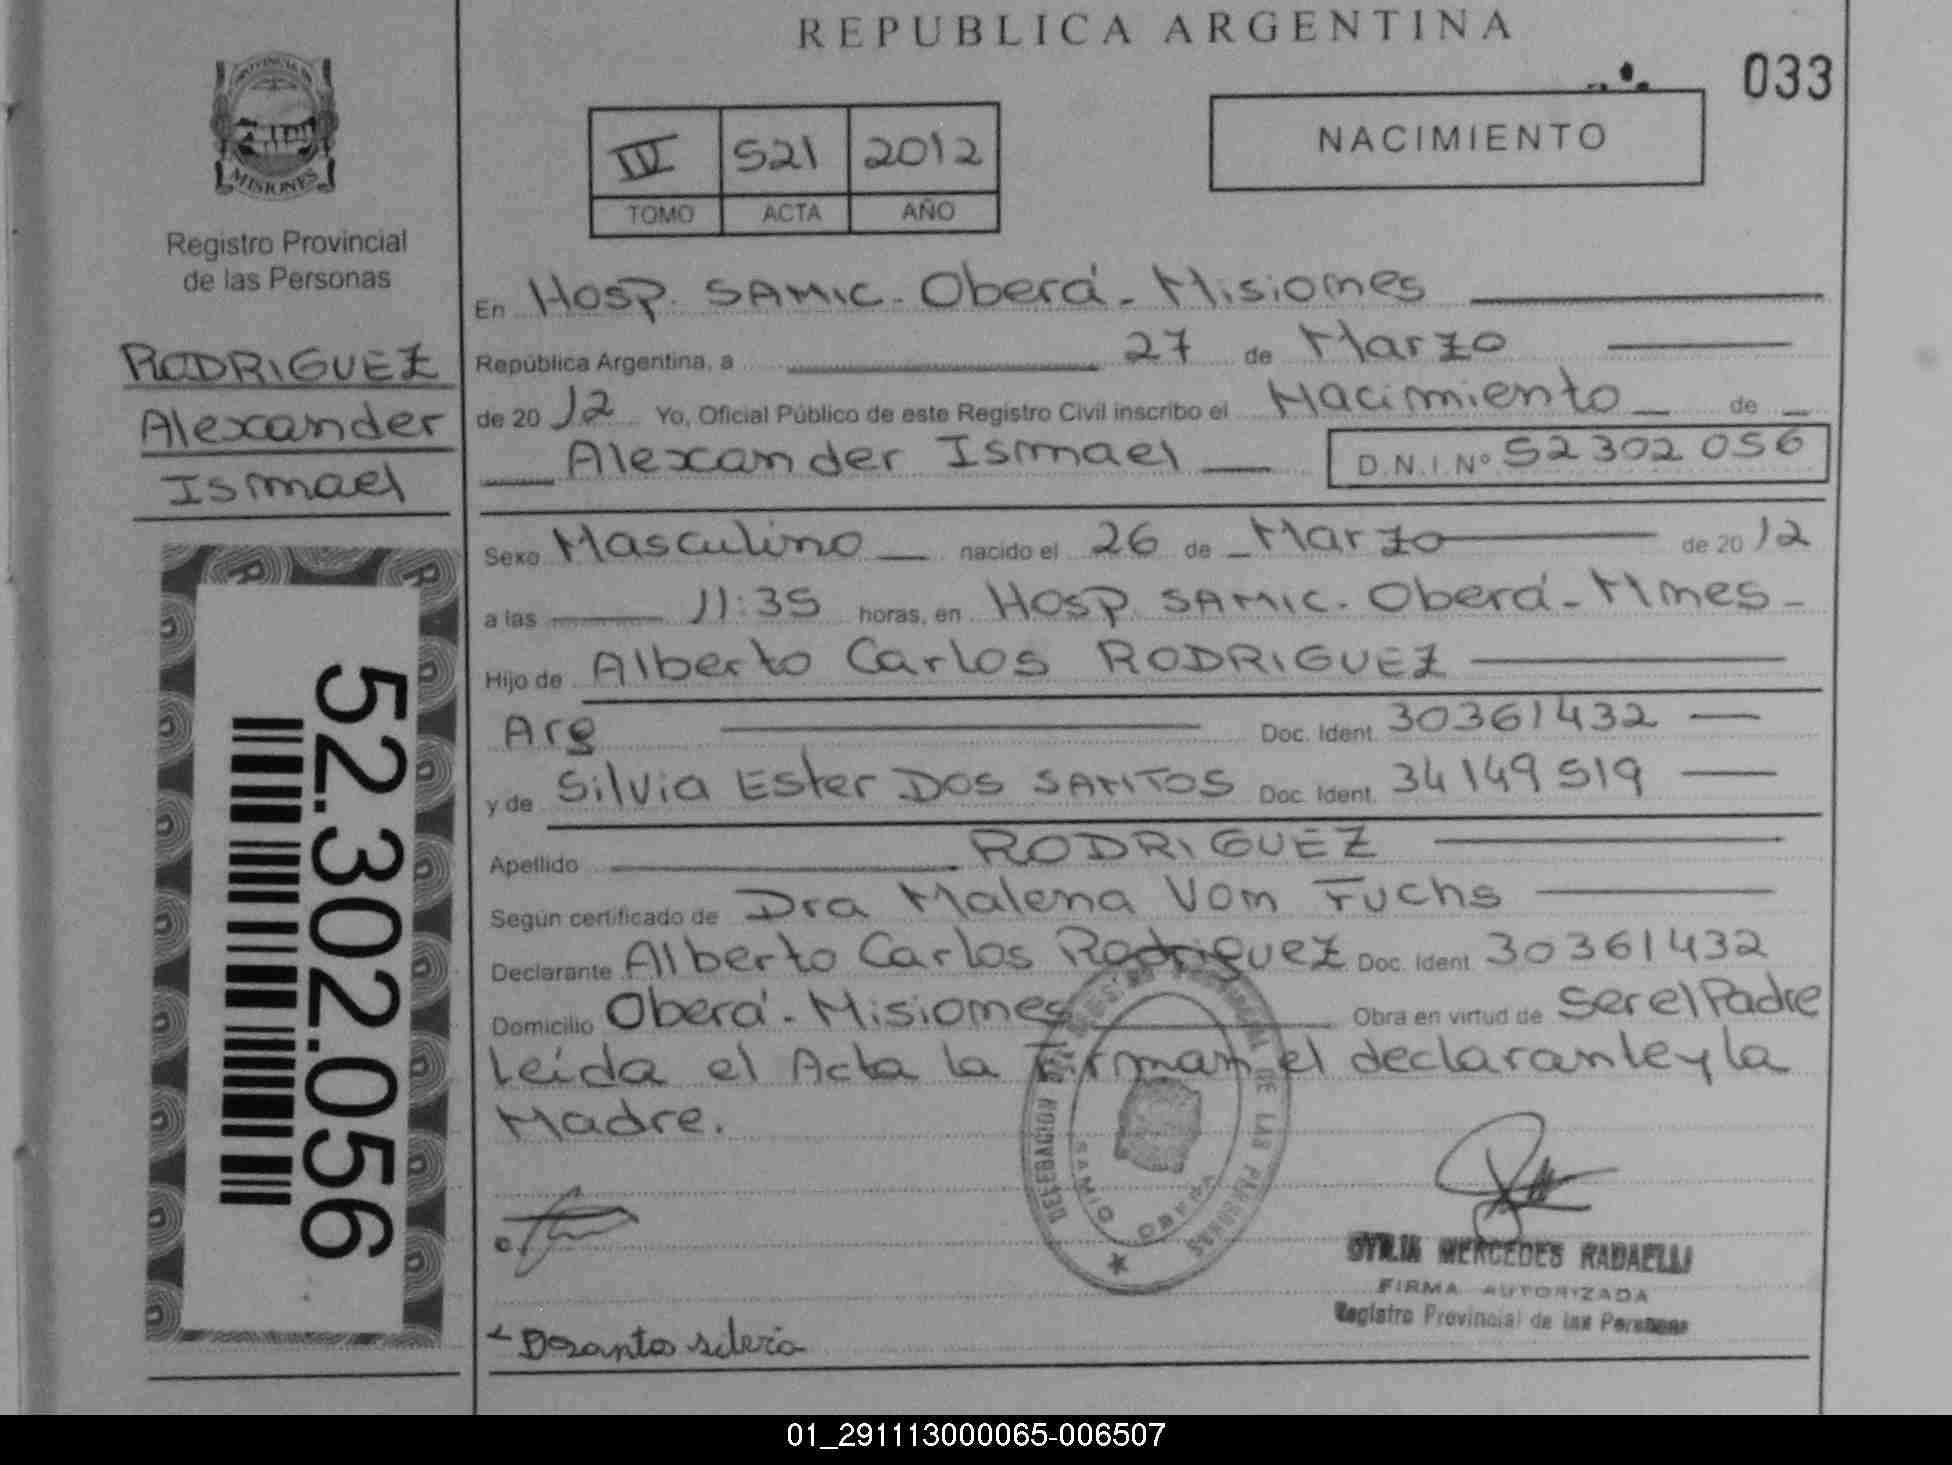 REPUBLICA ARGENTINA
033
PROVINCIA DE
MISIONES
Registro Provincial
de las Personas
RODRIGUEZ
Alexander
Ismael
52.302.056
IV 521 2012
TOMO ACTA AÑO
NACIMIENTO
En Hosp. SAMIC. Oberá - Misiones
República Argentina, a 27 de Marzo
de 2012 Yo, Oficial Público de este Registro Civil inscribo el Nacimiento de
Alexander Ismael D.N.I Nº 52302056
Sexo Masculino nacido el 26 de Marzo de 2012
a las 11:35 horas, en Hosp. SAMIC. Oberá - Mnes -
Hijo de Alberto Carlos RODRIGUEZ
Arg Doc. Ident. 30361432
y de Silvia Ester DOS SANTOS Doc. Ident. 34149519
Apellido RODRIGUEZ
Según certificado de Dra Malena Von Fuchs
Declarante Alberto Carlos Rodriguez Doc. Ident 30361432
Domicilio Oberá - Misiones Obra en virtud de ser el Padre
Leída el Acta la Firman el declarante y la
Madre.
DELEGACION
DE LAS PERSONAS
SAMIC OBERA
MERCEDES RADAELLI
FIRMA AUTORIZADA
Registro Provincial de las Personas
Dosantos silvia
01_291113000065-006507